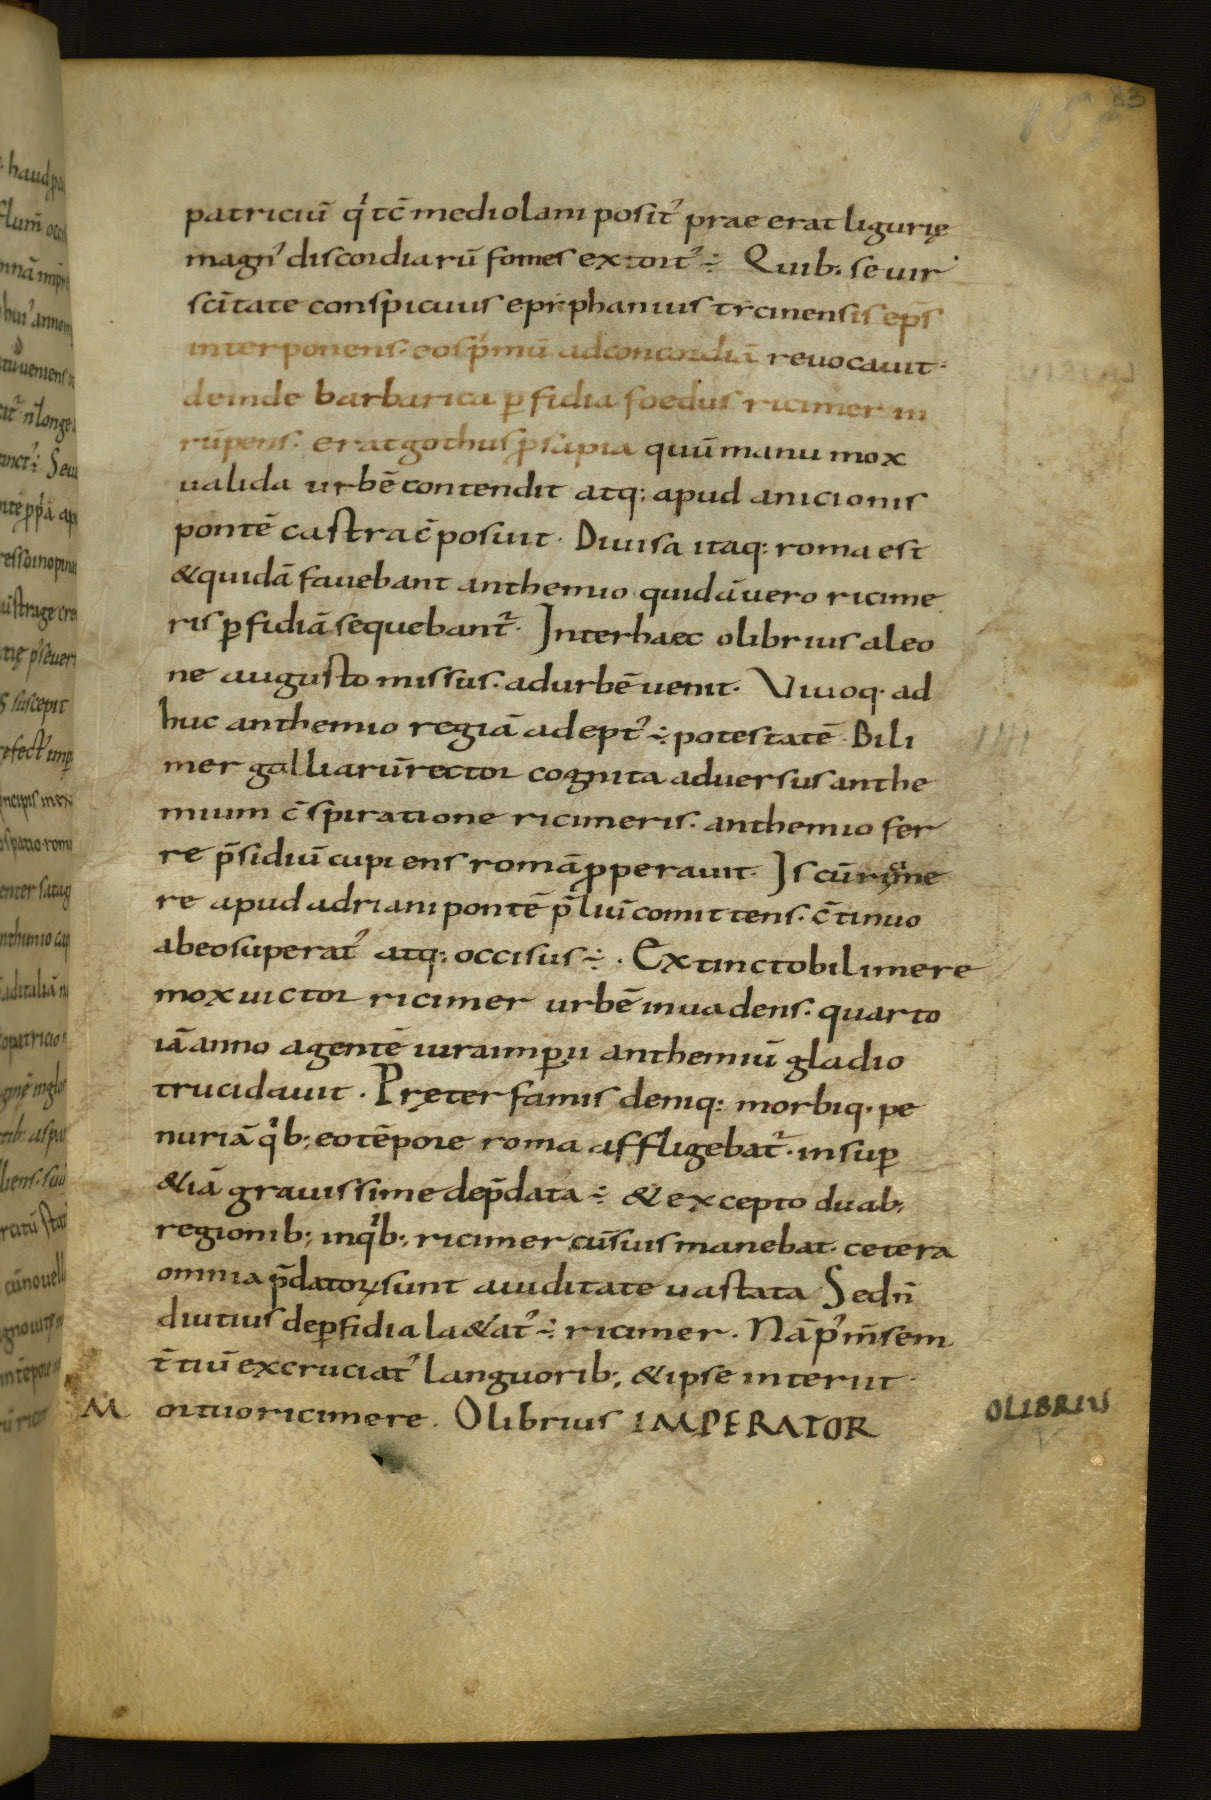 83
patriciū qͥ tc̄ mediolani positꝰ prae erat ligurię
magnꝰ discordiarū fomes extortꝰ ÷ Quib; se uir
scītate conspicuus epiphanius ticinensis ep̄s
interponens· eos pͥmū adconcordiā reuocauit·
deinde barbarica ꝑfidia foedus ricimer in
rūpens· erat gothus ꝓsapia quū manu mox
ualida urbē contendit atq; apud anicionis
pontē castra c̄posuit· Diuisa itaq; roma est
&quidā fauebant anthemio quidā uero ricime
ris ꝑfidiā sequebantᷣ· Interhaec olibrius aleo
ne augusto missus· adurbē uenit· Viuoq· ad
huc anthemio regiā adeptꝰ ÷ potestatē Bili
mer galliarū rector cognita aduersus anthe
mium c̄spiratione ricimeris· anthemio fer
re p̄sidiū cupiens romā ꝓperauit· Is cū ric̣me
re apud adriani pontē p̄liū comittens· c̄tinuo
abeo superatꝰ atq; occisus ÷· Extincto bilimere
mox uictor ricimer urbē inuadens· quarto
iā anno agentē iura imꝑii anthemiū gladio
trucidauit· Pręter famis deniq; morbiq· pe
nuriā qͥb; eo tēpore roma affligebatᷣ· insuꝑ
&iā grauissime dep̄data ÷ & excepto duab;
regionib; inqͥb; ricimer cū suis manebat· cetera
omnia p̄datoꝝ sunt auiditate uastata Sed n̄
diutius de ꝑfidia la&atꝰ ÷ ricimer· Nā pꝰ m̄sem
t̄tiū excruciatꝰ languorib; & ipse interiit·
M ortuo ricimere. Olibrius IMPERATOR
OLIBRIUS